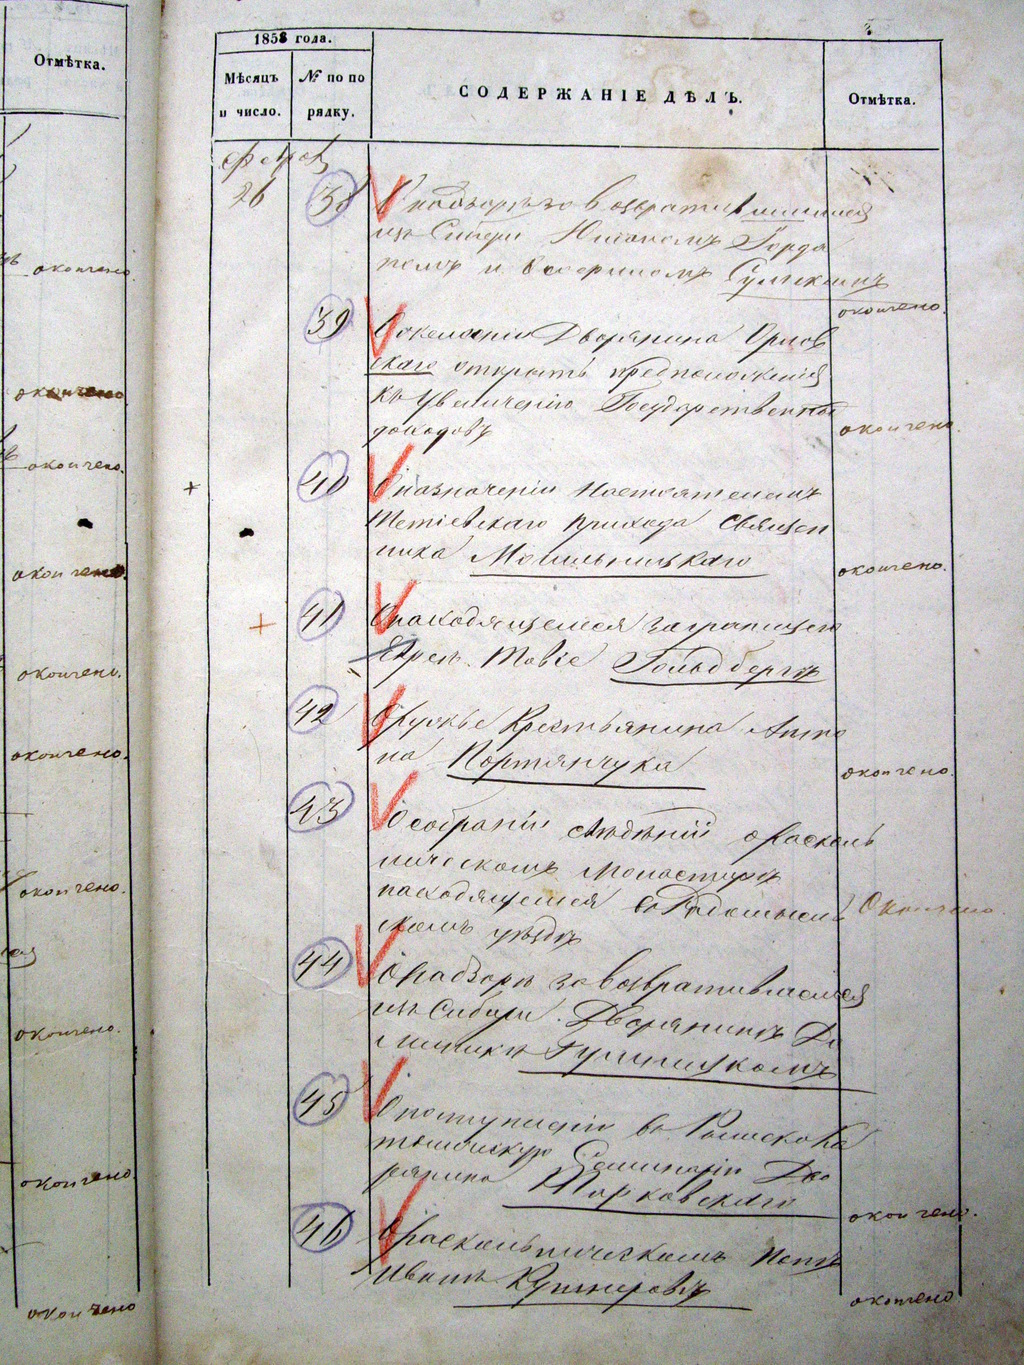 Отмѣтка.
окончено
окончено
окончено.
окончено.
окончено.
окончено.
окончено.
окончено.
окончено.
окончено
1858 года.
Мѣсяцъ и число.
№ по порядку.
СОДЕРЖАНІЕ ДѢЛЪ.
Отмѣтка.
Февр
26
38
О надзорѣ за возвратившимися
изъ Сибири
и
окончено.
39
О желаніи Дворянина Орлов
скаго открыть предположенія
къ увеличенію Государственных
доходовъ
окончено.
40
О назначеніи Настоятелемъ
Тетіевскаго прихода Священ
ника Могильницкаго
окончено.
41
О находящемся заграницею
Евреѣ Товіе Гольдбергѣ
42
О ружье Крестьянина Анто
на Портянчука
окончено.
43
О собраніи свѣдѣній о расколь
ническомъ монастырѣ
находящемся въ Радомысль
скомъ уѣздѣ
Окончено.
44
О надзорѣ за возвратившемся
изъ Сибири Дворянинѣ До
миникѣ
45
О поступленіи въ Римско Ка
толическую Семинарію Дво
рянина Марковскаго
окончено.
46
О раскольническомъ попѣ
Иванѣ
окончено